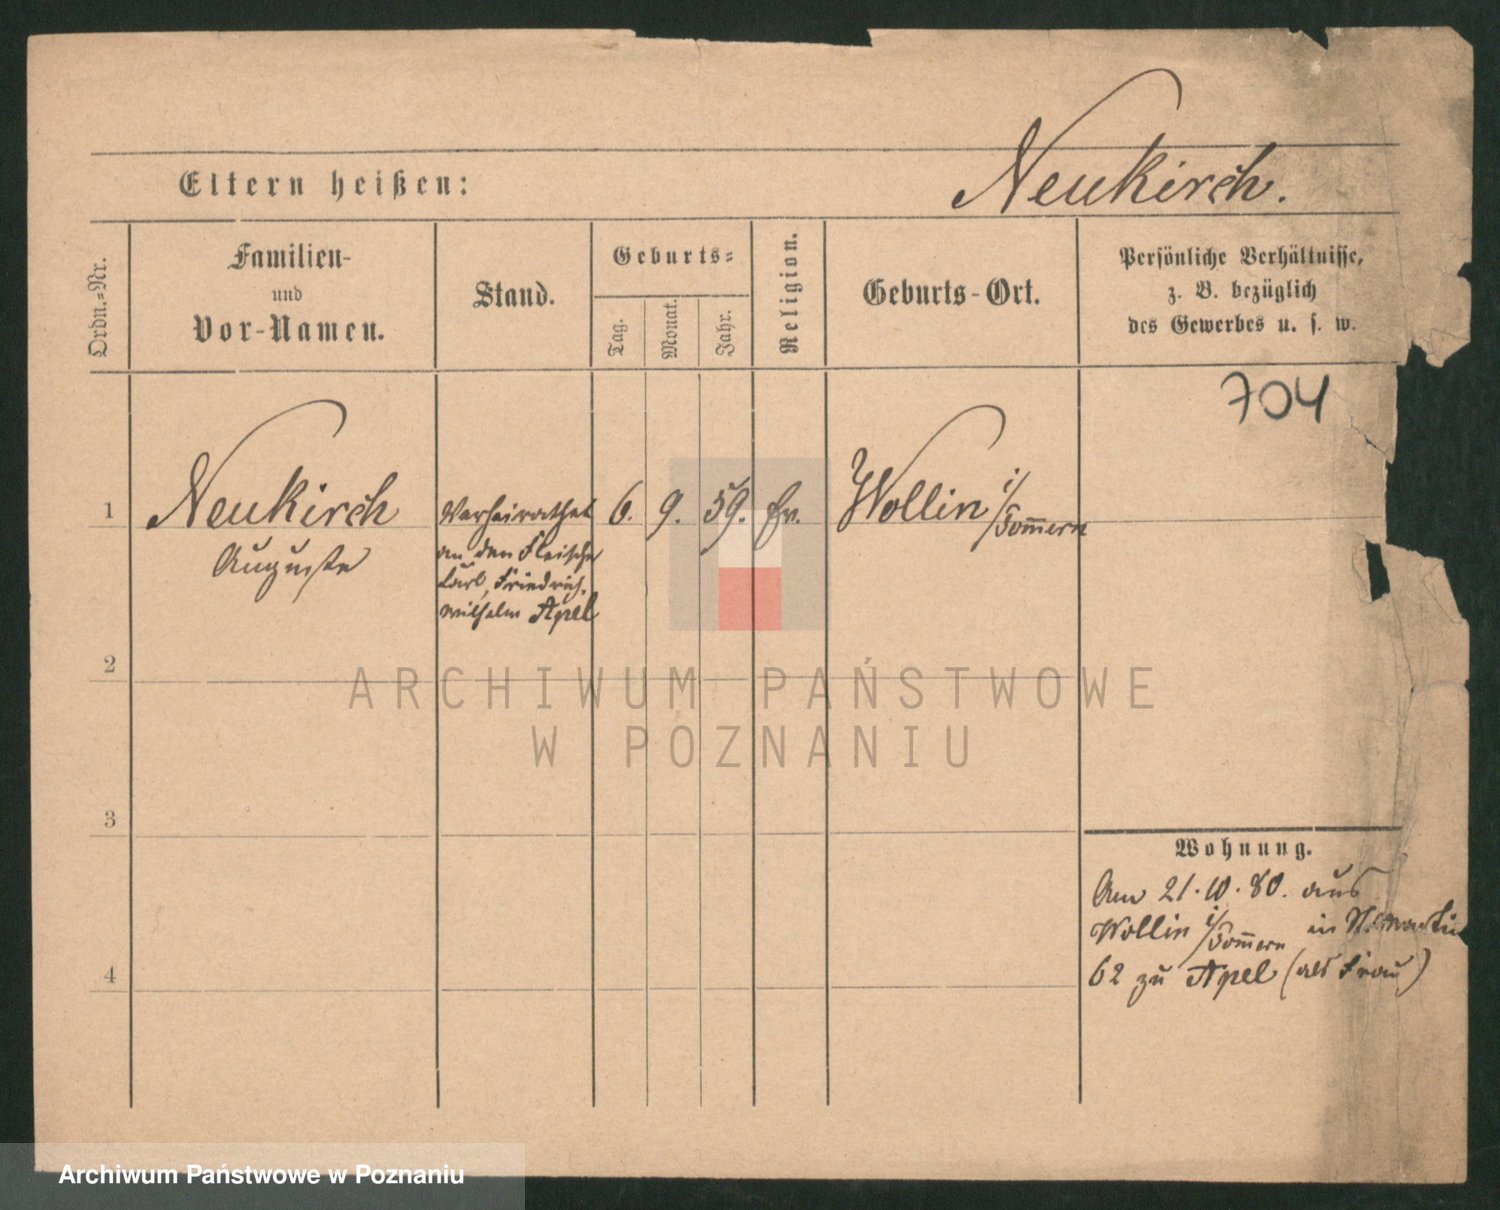 Neukirch.
Eltern heißen:
Ordn.-Nr.
Familien-
und
Vor-Namen.
Stand.
Geburts-
Tag.
Monat.
Jahr.
Religion.
Geburts-Ort.
Persönliche Verhältnisse,
z. B. bezüglich
des Gewerbes u. s. w.
704
1
Neukirch
Auguste
Verheirathet
an den Fleischer
Carl, Friedrich,
Wilhelm Apel
6. 9. 59. Ev.
Wollin i/Pommern
2
3
4
Wohnung.
Am 21.10.80. aus
Wollin i/Pommern in St. Martin
62 zu Apel (als Frau)
ARCHIWUM PAŃSTWOWE
W POZNANIU
Archiwum Państwowe w Poznaniu